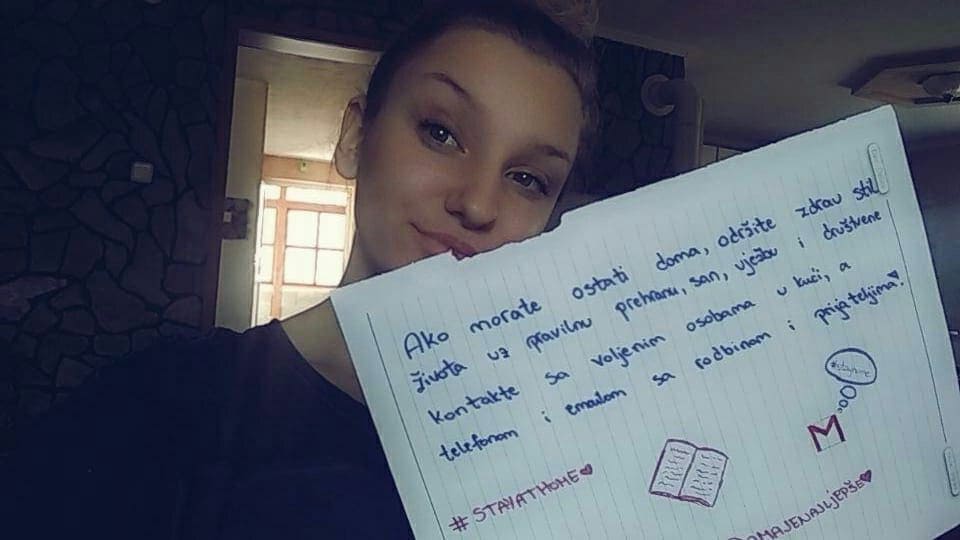 Ako morate ostati doma, održite zdrav stil
života uz pravilnu prehranu, san, vježbu i društvene
kontakte sa voljenim osobama u kući, a
telefonom i emailom sa rodbinom i prijateljima!
#stayhome
M
#STAYATHOME
DOMAJENAJLJEPŠE